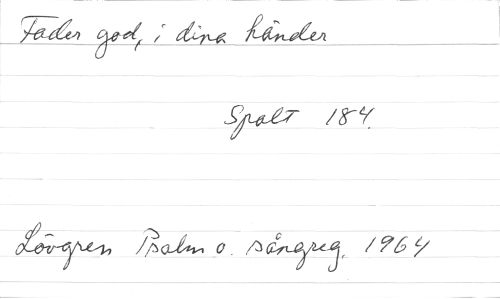 Fader god, i dina händer
Spalt 184.
Lövgren Psalm o. sångreg. 1964